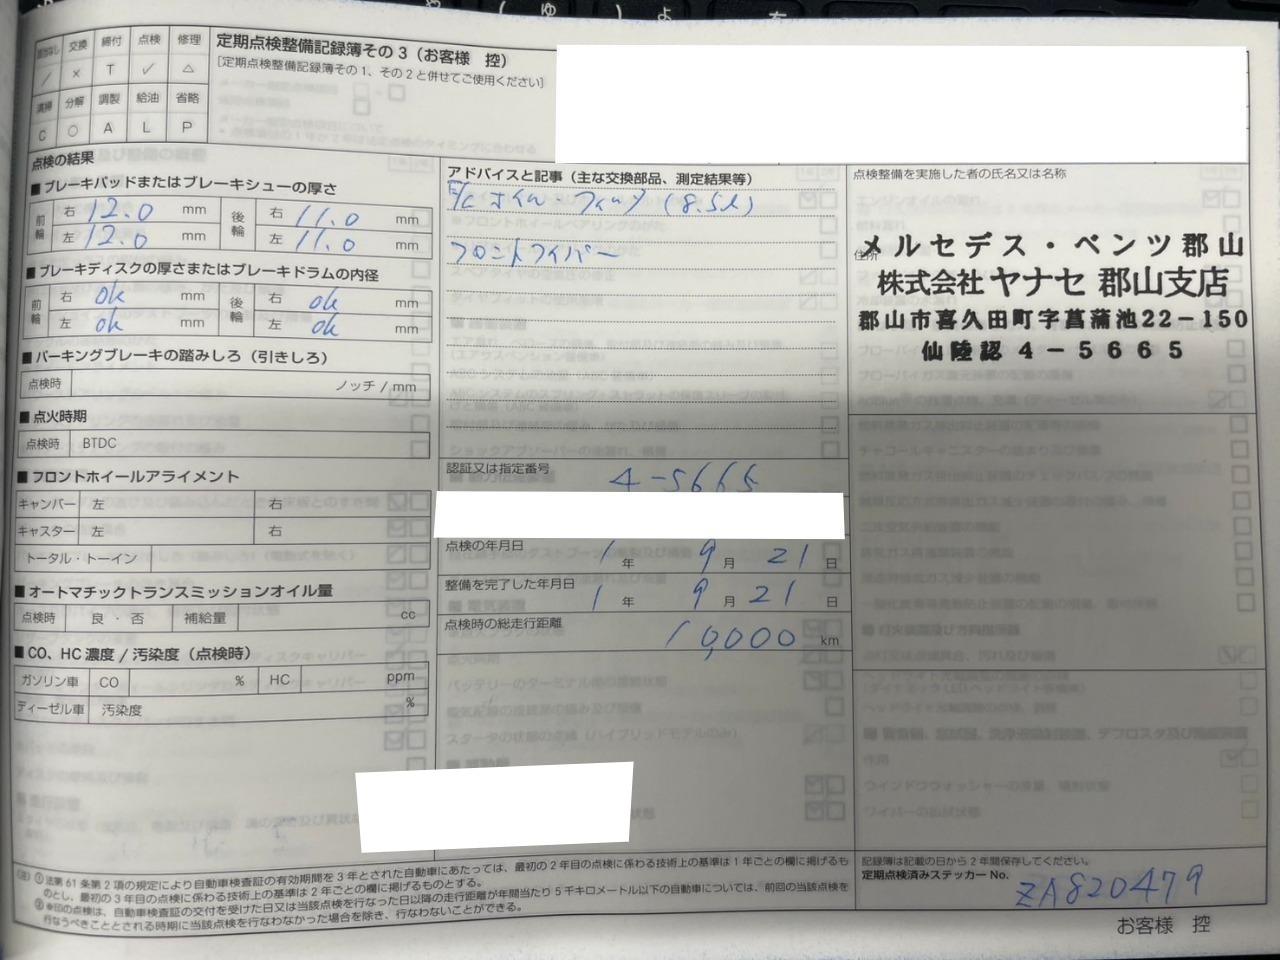 該当なし 交換 締付 点検 修理
/ × T ✓ △
清掃 分解 調製 給油 省略
C ○ A L P
定期点検整備記録簿その3（お客様 控）
[定期点検整備記録簿その1、その2と併せてご使用ください]
点検の結果
■ ブレーキパッドまたはブレーキシューの厚さ
前輪 右 12.0 mm 後輪 右 11.0 mm
左 12.0 mm 左 11.0 mm
■ ブレーキディスクの厚さまたはブレーキドラムの内径
前輪 右 ok mm 後輪 右 ok mm
左 ok mm 左 ok mm
■ パーキングブレーキの踏みしろ（引きしろ）
点検時 ノッチ / mm
■ 点火時期
点検時 BTDC
■ フロントホイールアライメント
キャンバー 左 右
キャスター 左 右
トータル・トーイン
■ オートマチックトランスミッションオイル量
点検時 良・否 補給量 cc
■ CO、HC 濃度 / 汚染度（点検時）
ガソリン車 CO % HC ppm
ディーゼル車 汚染度 %
アドバイスと記事（主な交換部品、測定結果等）
E/G オイル・フィルタ (8.5ℓ)
フロントワイパー
認証又は指定番号
4-5665
点検の年月日 1 年 9 月 21 日
整備を完了した年月日 1 年 9 月 21 日
点検時の総走行距離 10,000 km
点検整備を実施した者の氏名又は名称
住所
メルセデス・ベンツ郡山
株式会社 ヤナセ 郡山支店
郡山市喜久田町字菖蒲池22-150
仙陸認 4-5665
（注）① 法第61条第2項の規定により自動車検査証の有効期間を3年とされた自動車にあたっては、最初の2年目の点検に係わる技術上の基準は1年ごとの欄に掲げるも
のとし、最初の3年目の点検に係わる技術上の基準は2年ごとの欄に掲げるものとする。
② ※印の点検は、自動車検査証の交付を受けた日又は当該点検を行なった日以降の走行距離が年間当たり5千キロメートル以下の自動車については、前回の当該点検を
行なうべきこととされる時期に当該点検を行なわなかった場合を除き、行なわないことができる。
記録簿は記載の日から2年間保存してください。
定期点検済みステッカー No.
ZA820479
お客様 控